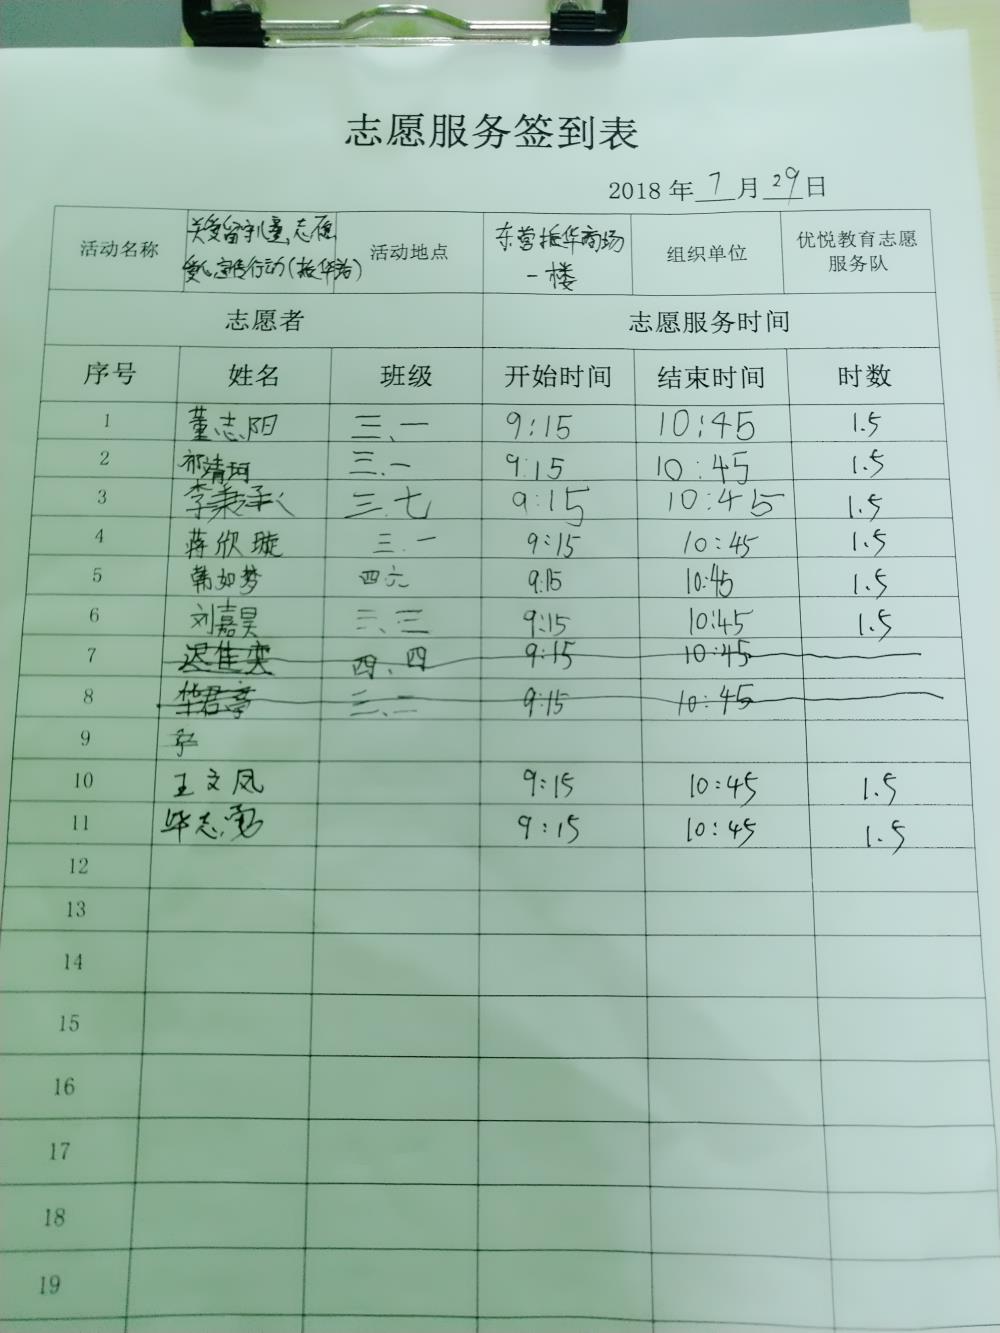 志愿服务签到表
2018 年 7 月 29 日
活动名称 关爱留守儿童、志愿 爱心宣传行动(振华站) 活动地点 东营振华商场 一楼 组织单位 优悦教育志愿 服务队
志愿者 志愿服务时间
序号 姓名 班级 开始时间 结束时间 时数
1 董志阳 三、一 9:15 10:45 1.5
2 祁靖珂 三、一 9:15 10:45 1.5
3 李秉承 三、七 9:15 10:45 1.5
4 蒋欣璇 三、一 9:15 10:45 1.5
5 韩如梦 四六 9:15 10:45 1.5
6 刘嘉昊 三、三 9:15 10:45 1.5
7 迟佳奕 四、四 9:15 10:45
8 华君亭 三、二 9:15 10:45
9
10 王文凤 9:15 10:45 1.5
11 毕志勇 9:15 10:45 1.5
12
13
14
15
16
17
18
19